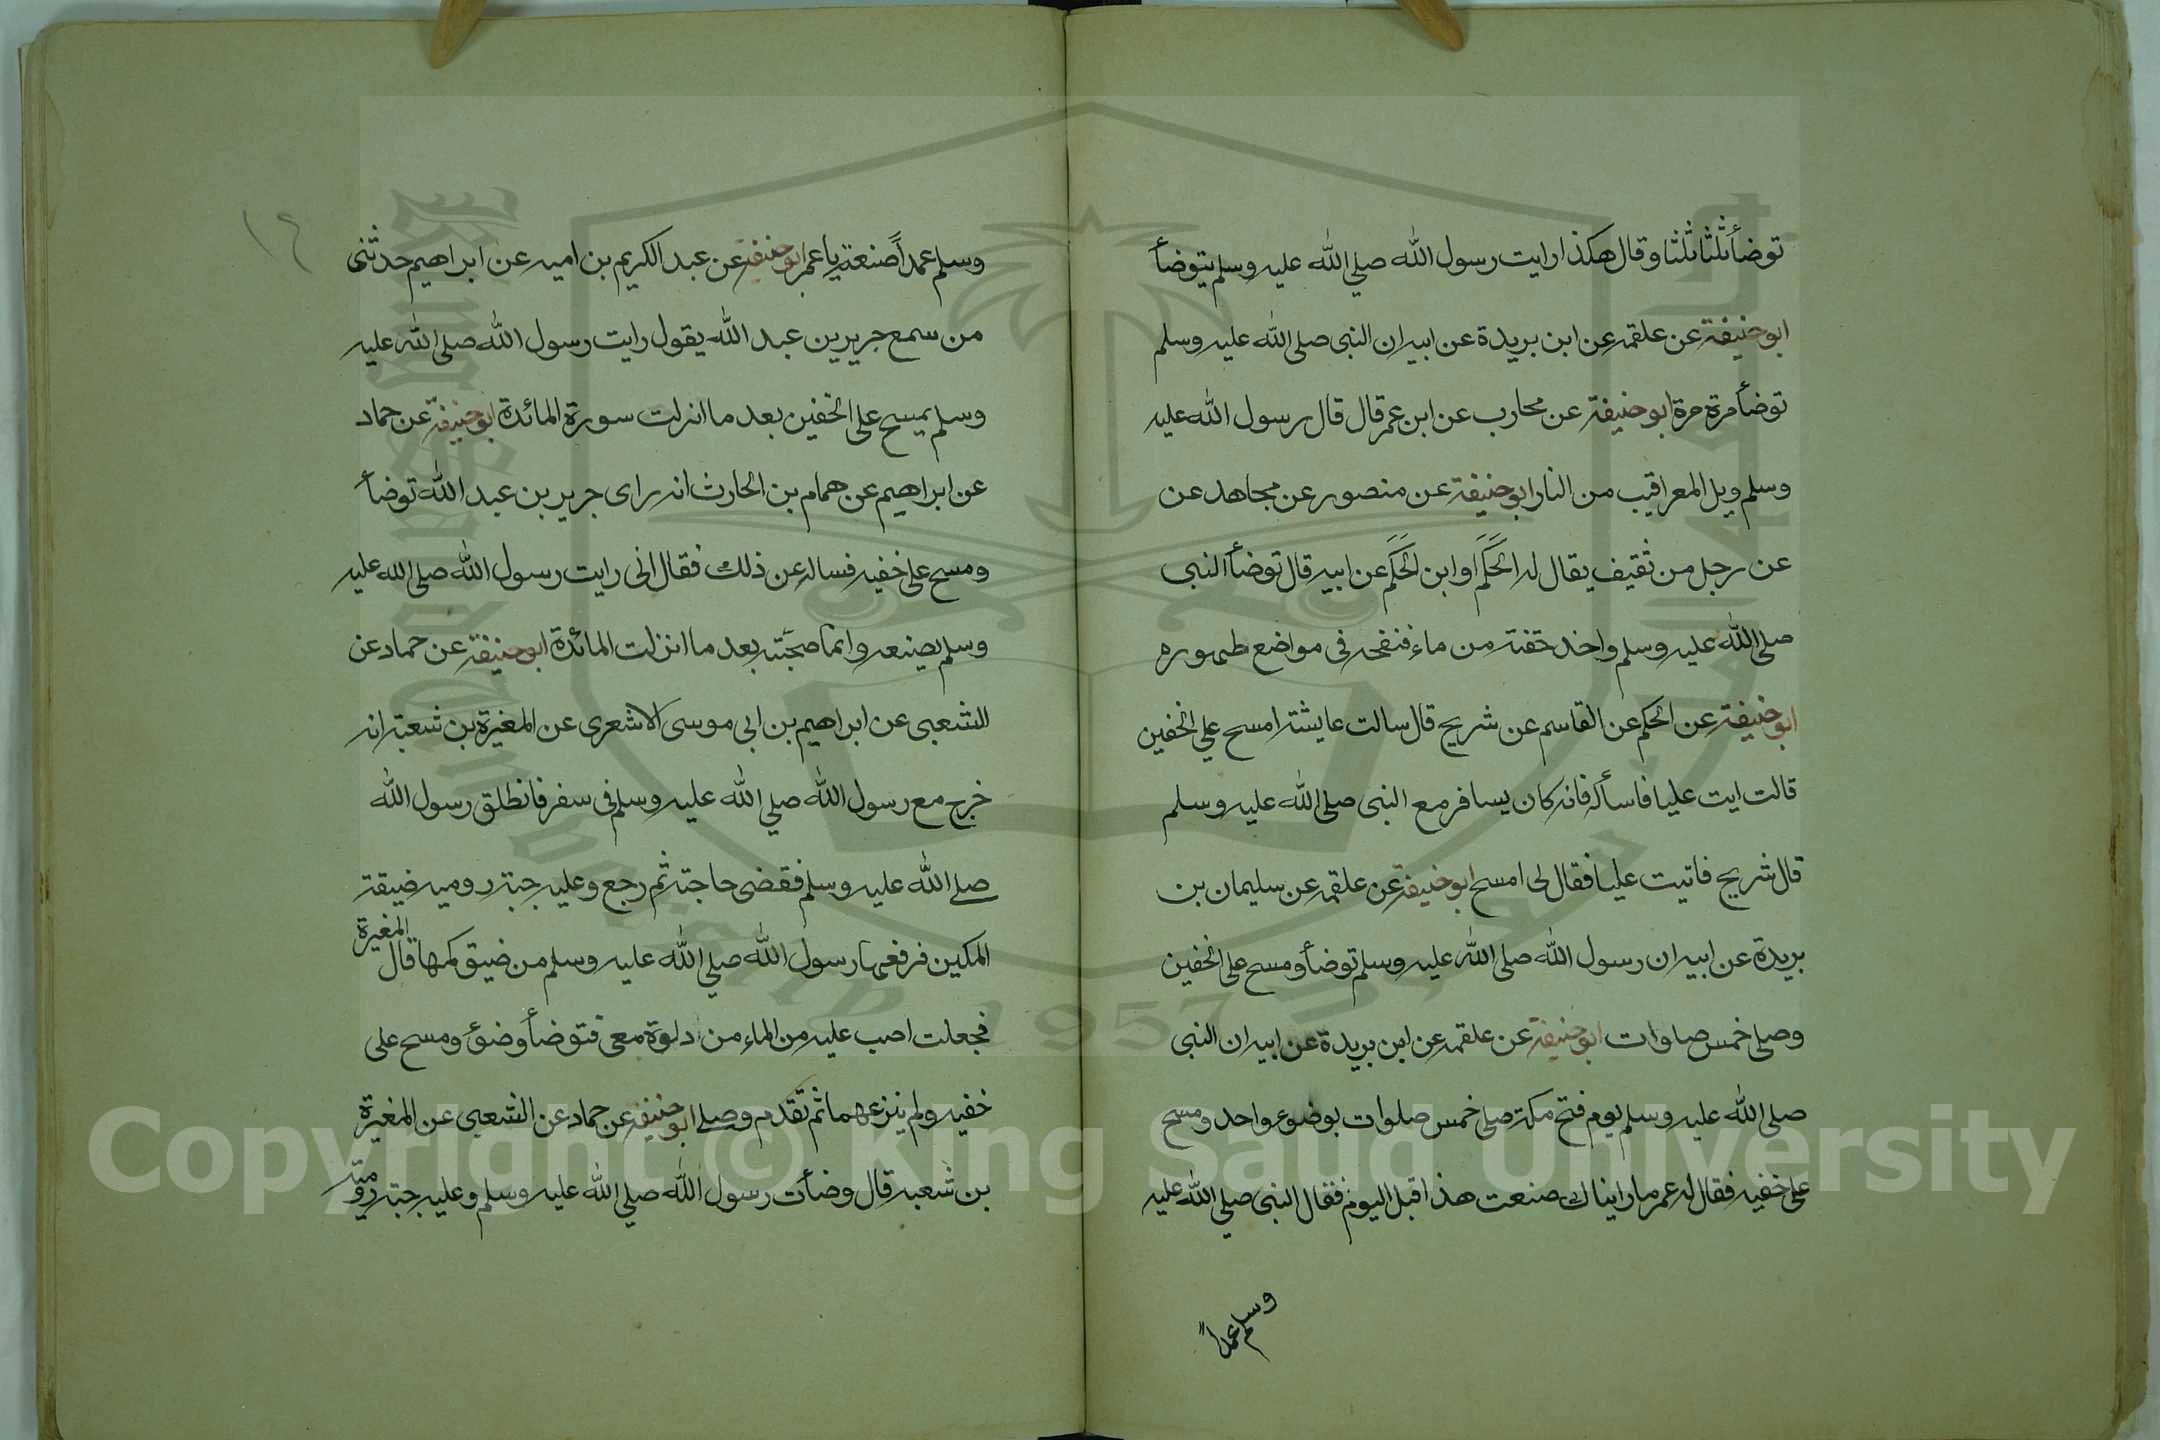 توضأ ثلثا ثلثا وقال هكذا رايت رسول الله صلي الله عليه وسلم يتوضأ
ابو حنيفة عن علقمه عن ابن بريدة عن ابيه ان النبى صلى الله عليه وسلم
توضأ مرة مرة ابو حنيفة عن محارب عن ابن عمر قال قال رسول الله عليه
وسلم ويل المعراقيب من النار ابو حنيفة عن منصور عن مجاهد عن
عن رجل من ثقيف يقال له الحَكَم او ابن الحَكَم عن ابيه قال توضأ النبى
صلي الله عليه وسلم واخد حفنة من ماء فنفحه فى مواضع طهوره
ابو حنيفة عن الحكم عن القاسم عن شريح قال سالت عايشة امسح علي الخفين
قالت ايت عليا فاسأله فانه كان يسافر مع النبى صلى الله عليه وسلم
قال شريح فاتيت عليا فقال لى امسح ابو حنيفة عن علقمه عن سليمان بن
بريدة عن ابيه ان رسول الله صلى الله عليه وسلم توضأ ومسح على الخفين
وصلى خمس صلوات ابو حنيفة عن علقمه عن ابن بريدة عن ابيه ان النبى
صلى الله عليه وسلم يوم فتح مكة صلى خمس صلوات بوضوء واحد ومسح
على خفيه فقال له عمر ما رايناك صنعت هذا قبل اليوم فقال النبى صلي الله عليه
وسلم عمداً
١٤
وسلم عمداً صنعته يا عمر ابو حنيفة عن عبد الكريم بن اميه عن ابراهيم حدثنى
من سمع جرير بن عبد الله يقول رايت رسول الله صلى الله عليه
وسلم يمسح على الخفين بعد ما انزلت سورة المائدة ابو حنيفة عن حماد
عن ابراهيم عن همام بن الحارث انه راى جرير بن عبد الله توضأ
ومسح على خفيه فساله عن ذلك فقال انى رايت رسول الله صلى الله عليه
وسلم يصنعه وانما صحبته بعد ما انزلت المائدة ابو حنيفة عن حماد عن
الشعبى عن ابراهيم بن ابى موسى الاشعرى عن المغيرة بن شعبة انه
خرج مع رسول الله صلي الله عليه وسلم فى سفر فانطلق رسول الله
صلى الله عليه وسلم فقضى حاجته ثم رجع وعليه جبة روميه ضيقة
المكين فرفعها رسول الله صلي الله عليه وسلم من ضيق كمها قال المغيرة
فجعلت اصب عليه من الماء من دلوة معى فتوضأ وضوئ ومسح على
خفيه ولم ينزعهما ثم تقدم وصلى ابو حنيفة عن حماد عن الشعبى عن المغيرة
بن شعبه قال وضأت رسول الله صلي الله عليه وسلم وعليه جبة رومية
Copyright © King Saud University
King Saud University
1957